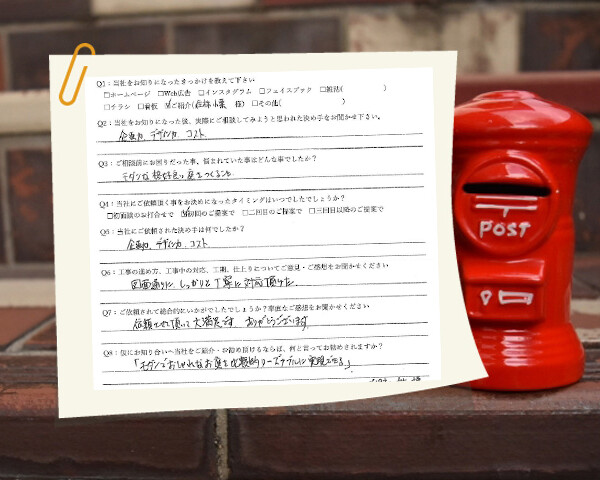 Q1：当社をお知りになったきっかけを教えて下さい
□ホームページ □Web広告 □インスタグラム □フェイスブック □雑誌( )
□チラシ □看板 ☑ご紹介( 様) □その他( )
Q2：当社をお知りになった後、実際にご相談してみようと思われた決め手をお聞かせ下さい。
企画力、デザイン力、コスト
Q3：ご相談前にお困りだった事、悩まれていた事はどんな事でしたか？
モダンな 格好良い庭をつくること
Q4：当社にご依頼頂く事をお決めになったタイミングはいつでしたでしょうか？
□初面談のお打合せで ☑初回のご提案で □二回目のご提案で □三回目以降のご提案で
Q5：当社にご依頼された決め手は何でしたか？
企画力、デザイン力、コスト
Q6：工事の進め方、工事中の対応、工期、仕上りについてご意見・ご感想をお聞かせください
図面通りに、しっかりと丁寧に対応頂けた。
Q7：ご依頼されて総合的にいかがでしたでしょうか？率直なご感想をお聞かせください
依頼させて頂いて大満足です ありがとうございます。
Q8：仮にお知り合いへ当社をご紹介・お勧め頂けるならば、何と言ってお勧めされますか？
「モダンでおしゃれなお庭を比較的リーズナブルに実現できる」
POST